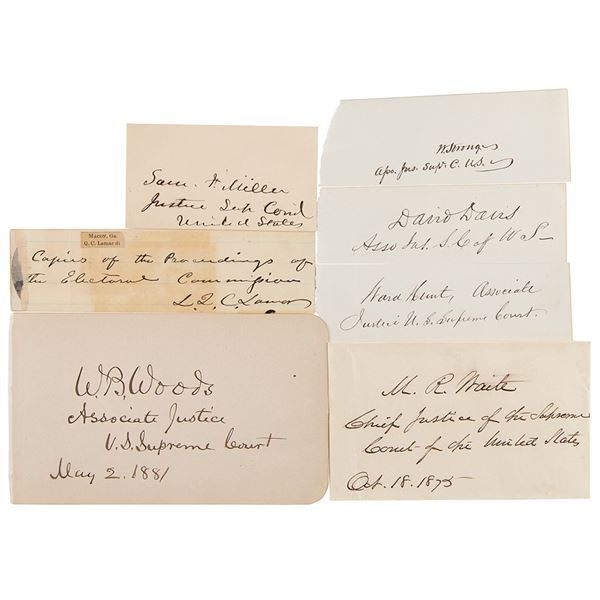 Sam. F Miller
Justice Sup Court
United States
Macon, Ga.
Q. C. Lamar di
Copies of the Proceedings of
the Electoral Commission
L. Q. C. Lamar
W. B. Woods
Associate Justice
U.S. Supreme Court
May 2. 1881
W. Strong
Jus. Sup. C. U.S.
David Davis
Asso Jus. S. C of U S
Ward Hunt, Associate
Justice U. S. Supreme Court.
M. R. Waite
Chief Justice of the Supreme
Court of the United States
Oct. 18. 1875